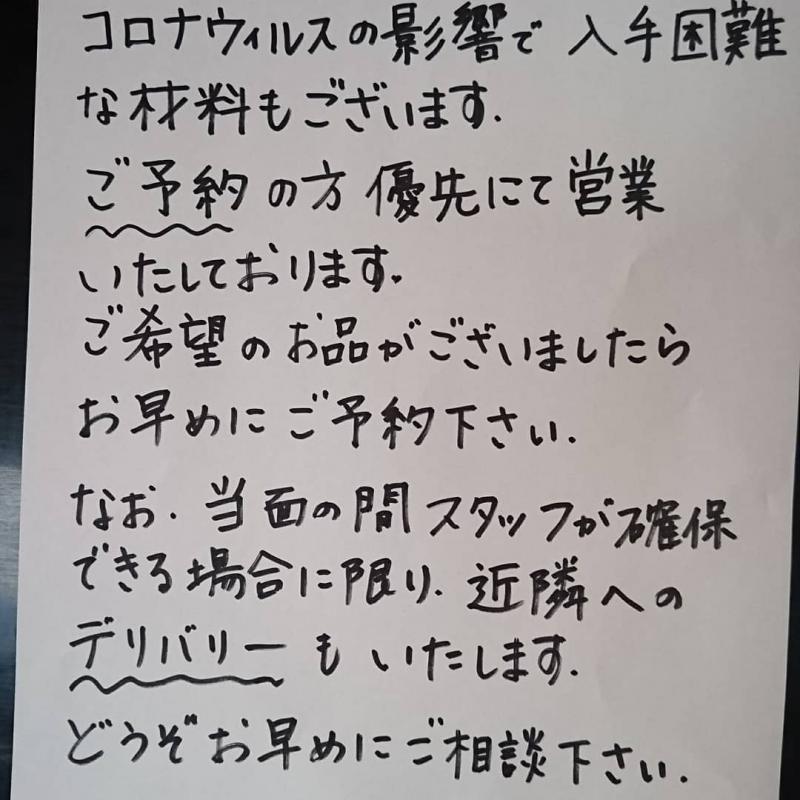 コロナウィルスの影響で 入手困難
な材料もございます.
ご予約の方優先にて営業
いたしております.
ご希望のお品がございましたら
お早めにご予約下さい.
なお.当面の間スタッフが確保
できる場合に限り.近隣への
デリバリーもいたします.
どうぞお早めにご相談下さい.